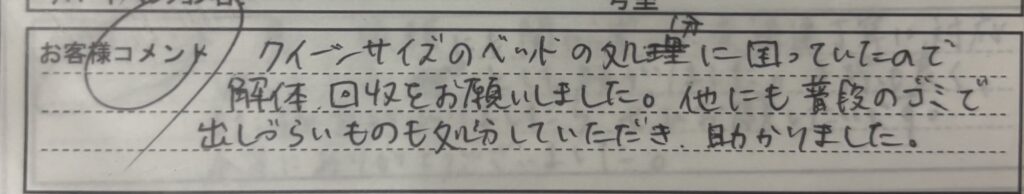 お客様コメント
クイーンサイズのベッドの処分に困っていたので
解体、回収をお願いしました。他にも普段のゴミで
出しづらいものも処分していただき、助かりました。